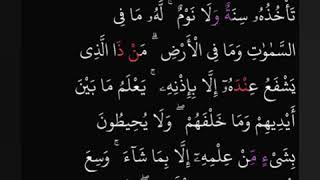 تَأْخُذُهُۥ سِنَةٌ وَلَا نَوْمٌ ۚ لَّهُۥ مَا فِى
السَّمَٰوَٰتِ وَمَا فِى الْأَرْضِ ۗ مَنْ ذَا الَّذِى
يَشْفَعُ عِنْدَهُۥٓ إِلَّا بِإِذْنِهِۦ ۚ يَعْلَمُ مَا بَيْنَ
أَيْدِيهِمْ وَمَا خَلْفَهُمْ ۖ وَلَا يُحِيطُونَ
بِشَىْءٍ مِّنْ عِلْمِهِۦٓ إِلَّا بِمَا شَآءَ ۚ وَسِعَ